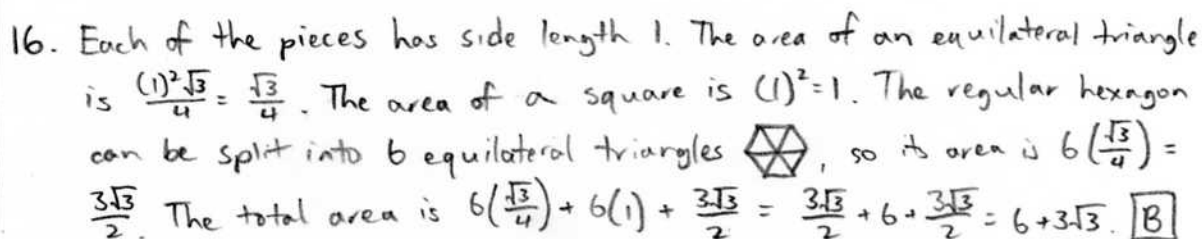 16. Each of the pieces has side length 1. The area of an equilateral triangle
is (1)²√3/4 = √3/4. The area of a square is (1)²=1. The regular hexagon
can be split into 6 equilateral triangles, so its area is 6(√3/4) =
3√3/2. The total area is 6(√3/4) + 6(1) + 3√3/2 = 3√3/2 + 6 + 3√3/2 = 6+3√3. B